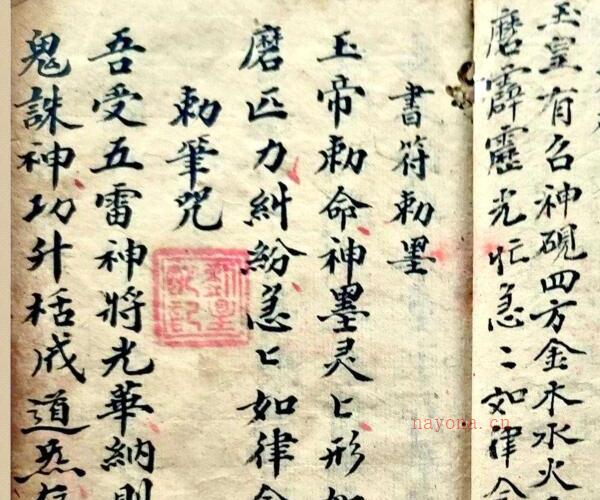 玉皇有召神硯四方金木水火
磨霹靂光忙急〻如律令
書符勅墨
玉帝勅命神墨灵〻形如
磨匹力糾紛急〻如律令
勅筆咒
吾受五雷神將光華納則
鬼誅神功升括成道炁存
nayona.cn